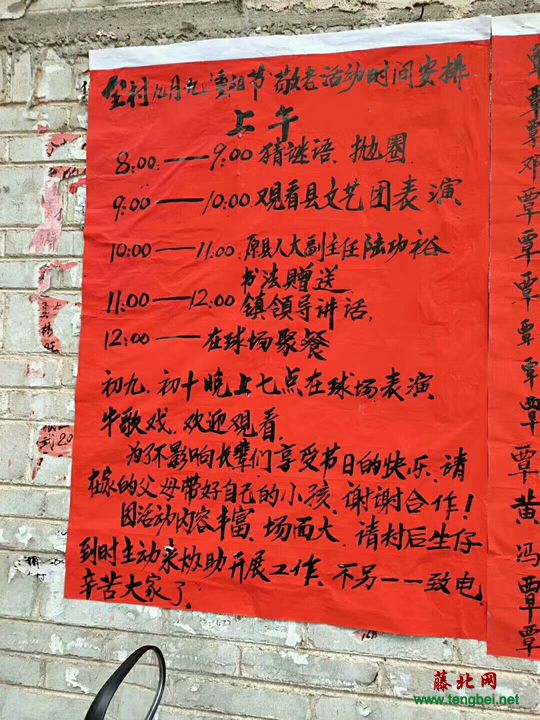 全村九月九重阳节敬老活动时间安排
上午
8:00:——9:00猜谜语、抛圈
9:00——10:00观看县文艺团表演
10:00——11:00.原县人大副主任陆功裕
书法赠送
11:00——12:00镇领导讲话,
12:00——在球场聚餐
初九、初十晚上七点在球场表演
牛歌戏、欢迎观看.
为了不影响长辈们享受节日的快乐、请
在家的父母带好自己的小孩、谢谢合作!
因活动内容丰富、场面大、请村后生仔
到时主动来协助开展工作、不另一一致电
辛苦大家了.
覃
覃
覃
邓
覃
覃
覃
覃
覃
覃
覃
黄
冯
覃
覃
藤北网
www.tengbei.net